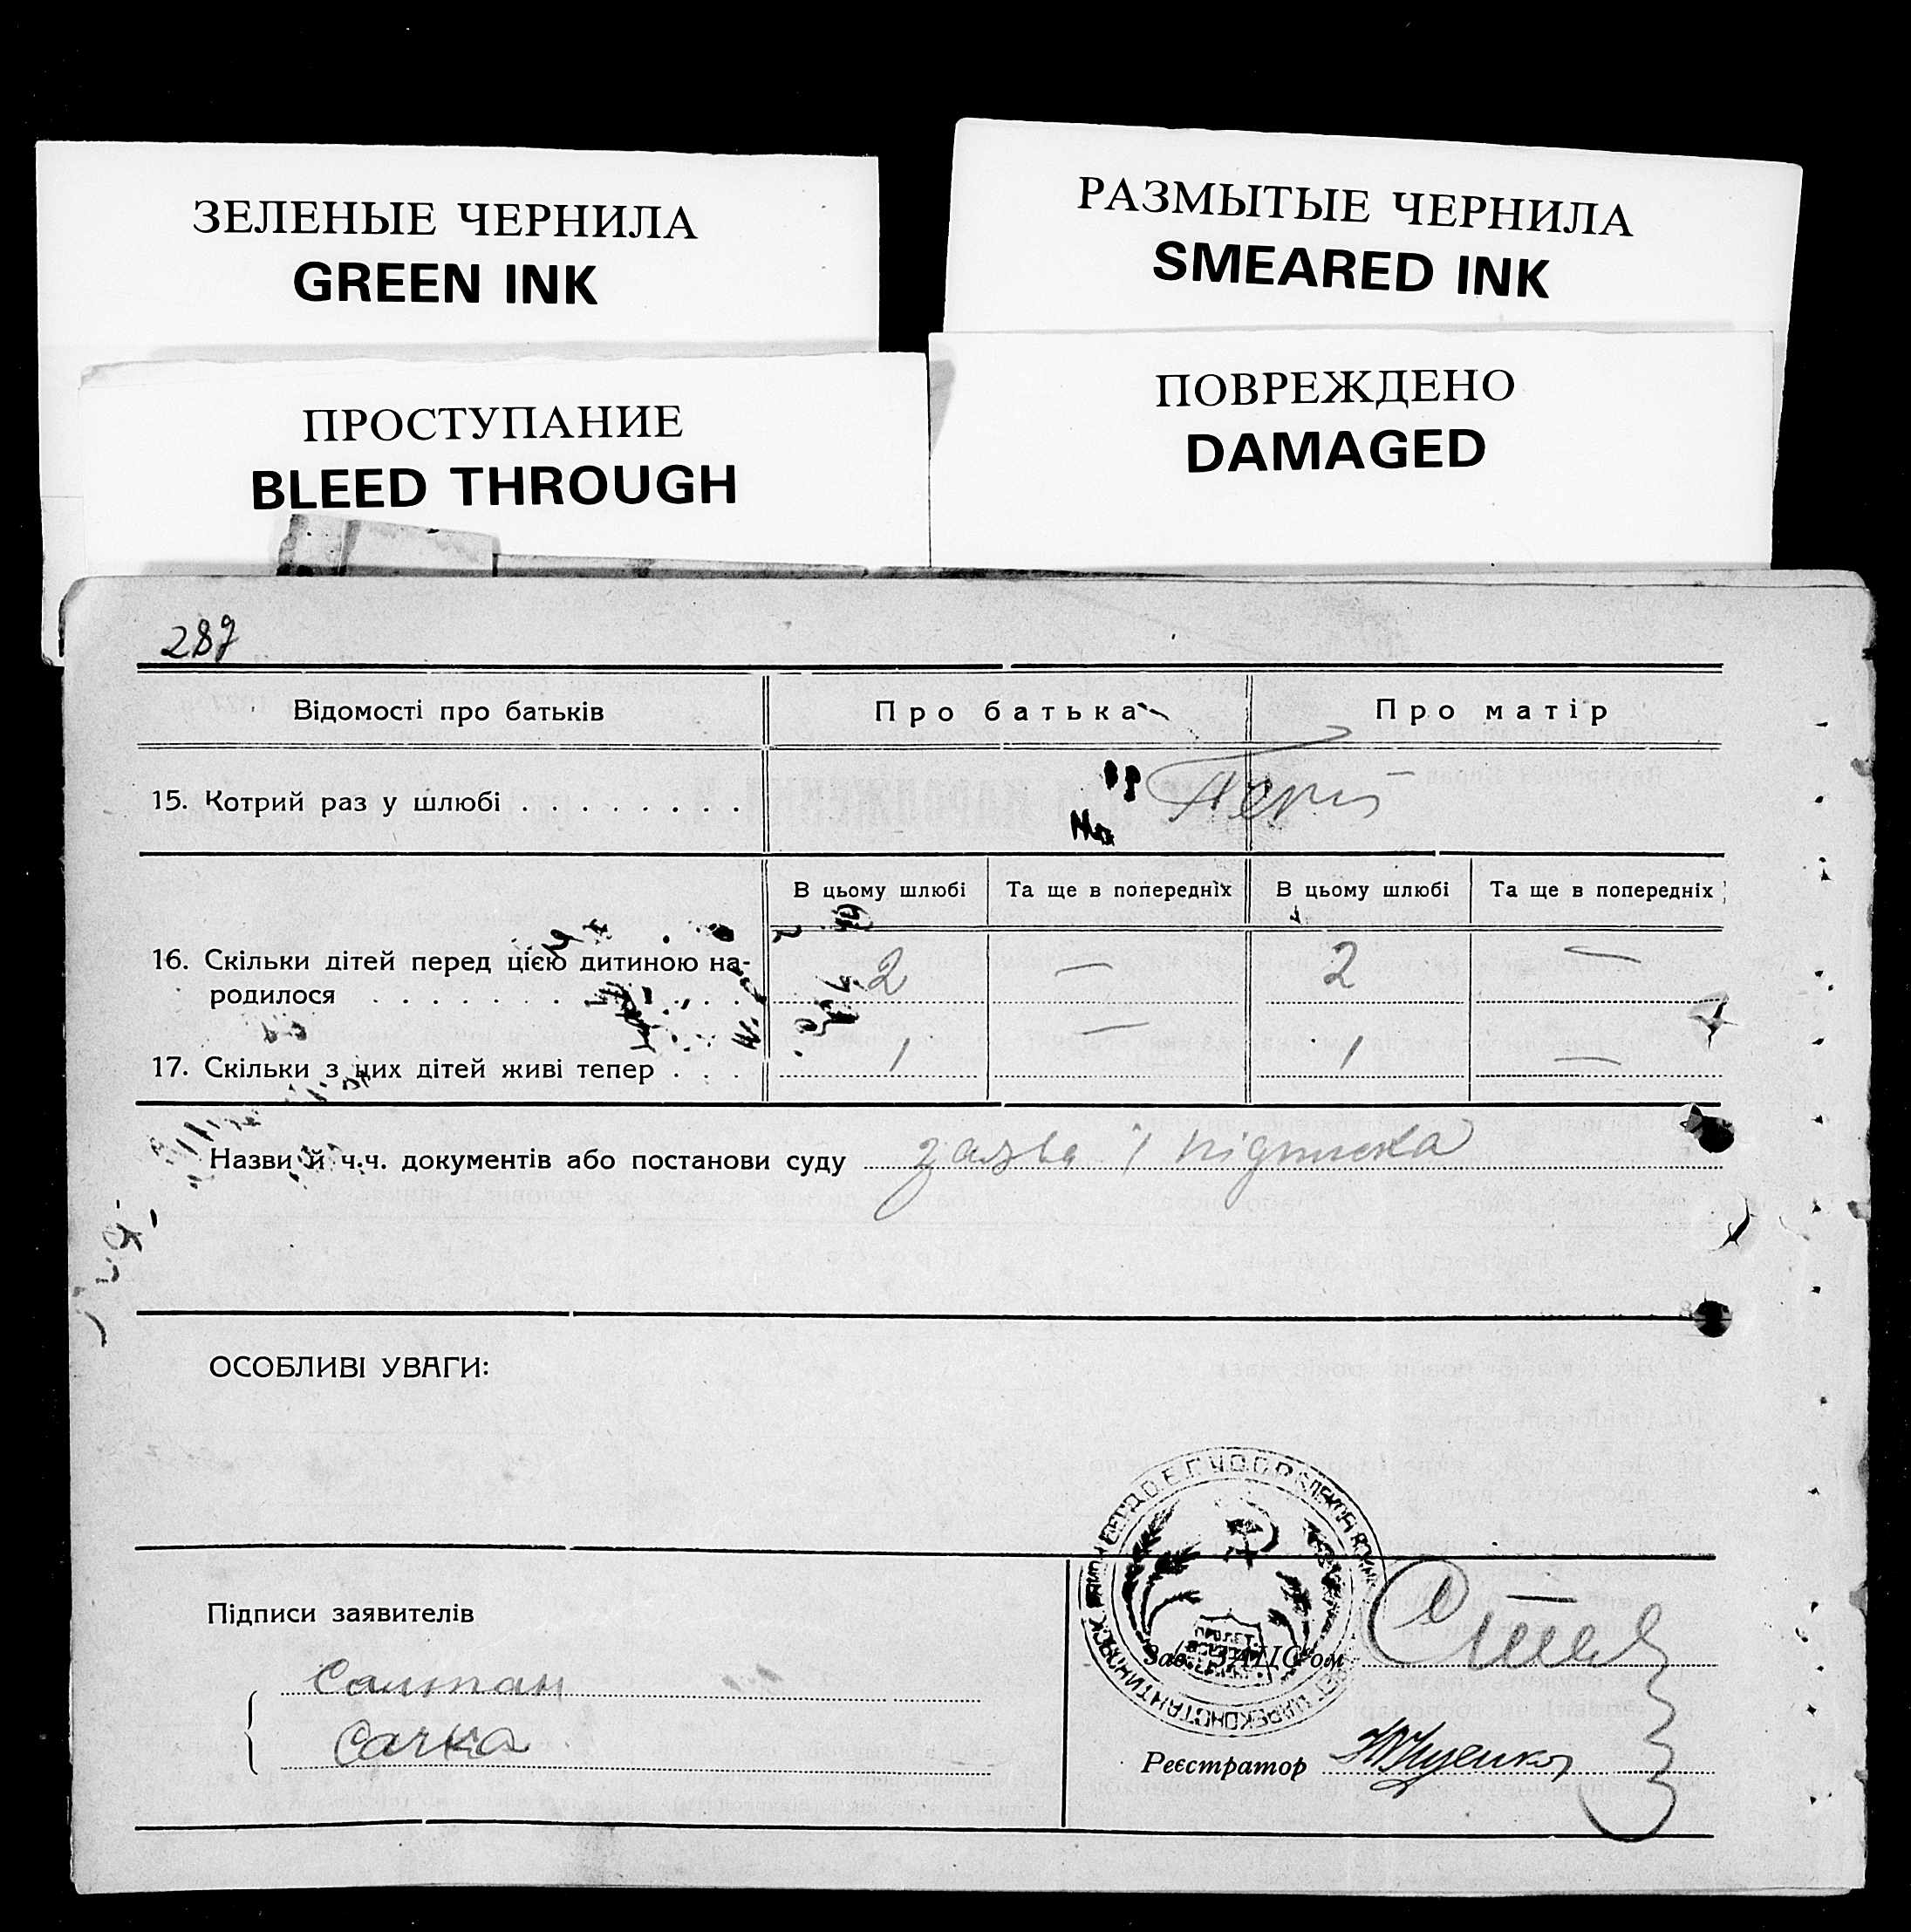 ЗЕЛЕНЫЕ ЧЕРНИЛА
GREEN INK
РАЗМЫТЫЕ ЧЕРНИЛА
SMEARED INK
ПРОСТУПАНИЕ
BLEED THROUGH
ПОВРЕЖДЕНО
DAMAGED
287
Відомості про батьків Про батька Про матір
15. Котрий раз у шлюбі . . . . . . . .
В цьому шлюбі Та ще в попередніх В цьому шлюбі Та ще в попередніх
16. Скільки дітей перед цією дитиною на-
родилося 2 — 2 —
17. Скільки з них дітей живі тепер . . . 1 — 1 —
Назви й ч.ч. документів або постанови суду заява і підписка
ОСОБЛИВІ УВАГИ:
Підписи заявителів
Зав. ЗАЦС'ом
Салтан
Сачка
Реєстратор